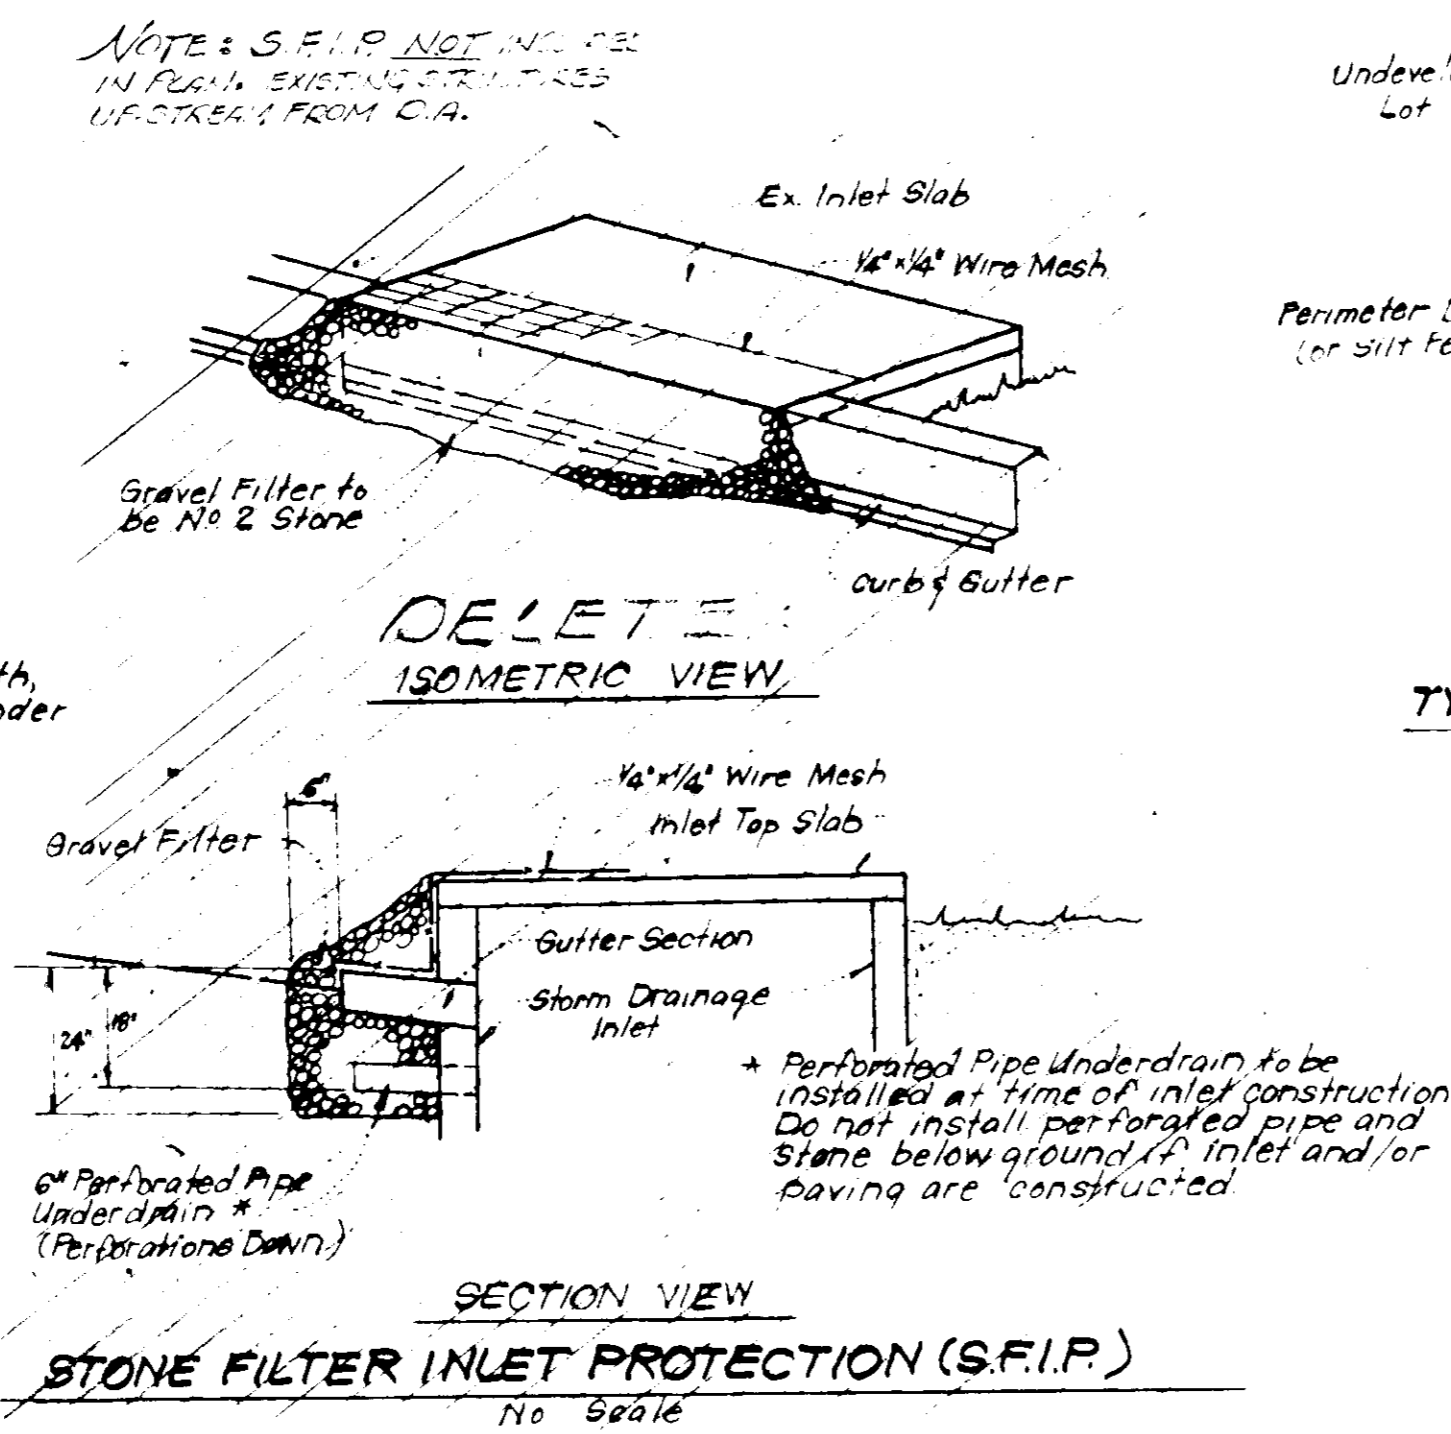 NOTE: S.F.I.P. NOT
IN PLAN. EXISTING STRUCTURES
UPSTREAM FROM D.A.
Undevel
Lot
Ex. Inlet Slab
1/4" x 1/4" Wire Mesh
Perimeter
(or Silt Fe
Gravel Filter to
be No. 2 Stone
Curb & Gutter
DELETE
ISOMETRIC VIEW
th,
oder
TY
1/4" x 1/4" Wire Mesh
Inlet Top Slab
6"
Gravel Filter
Gutter Section
Storm Drainage
Inlet
24"
18"
* Perforated Pipe Underdrain to be
installed at time of inlet construction
Do not install perforated pipe and
stone below ground if inlet and/or
paving are constructed.
6" Perforated Pipe
Underdrain *
(Perforations Down)
SECTION VIEW
STONE FILTER INLET PROTECTION (S.F.I.P.)
No Scale